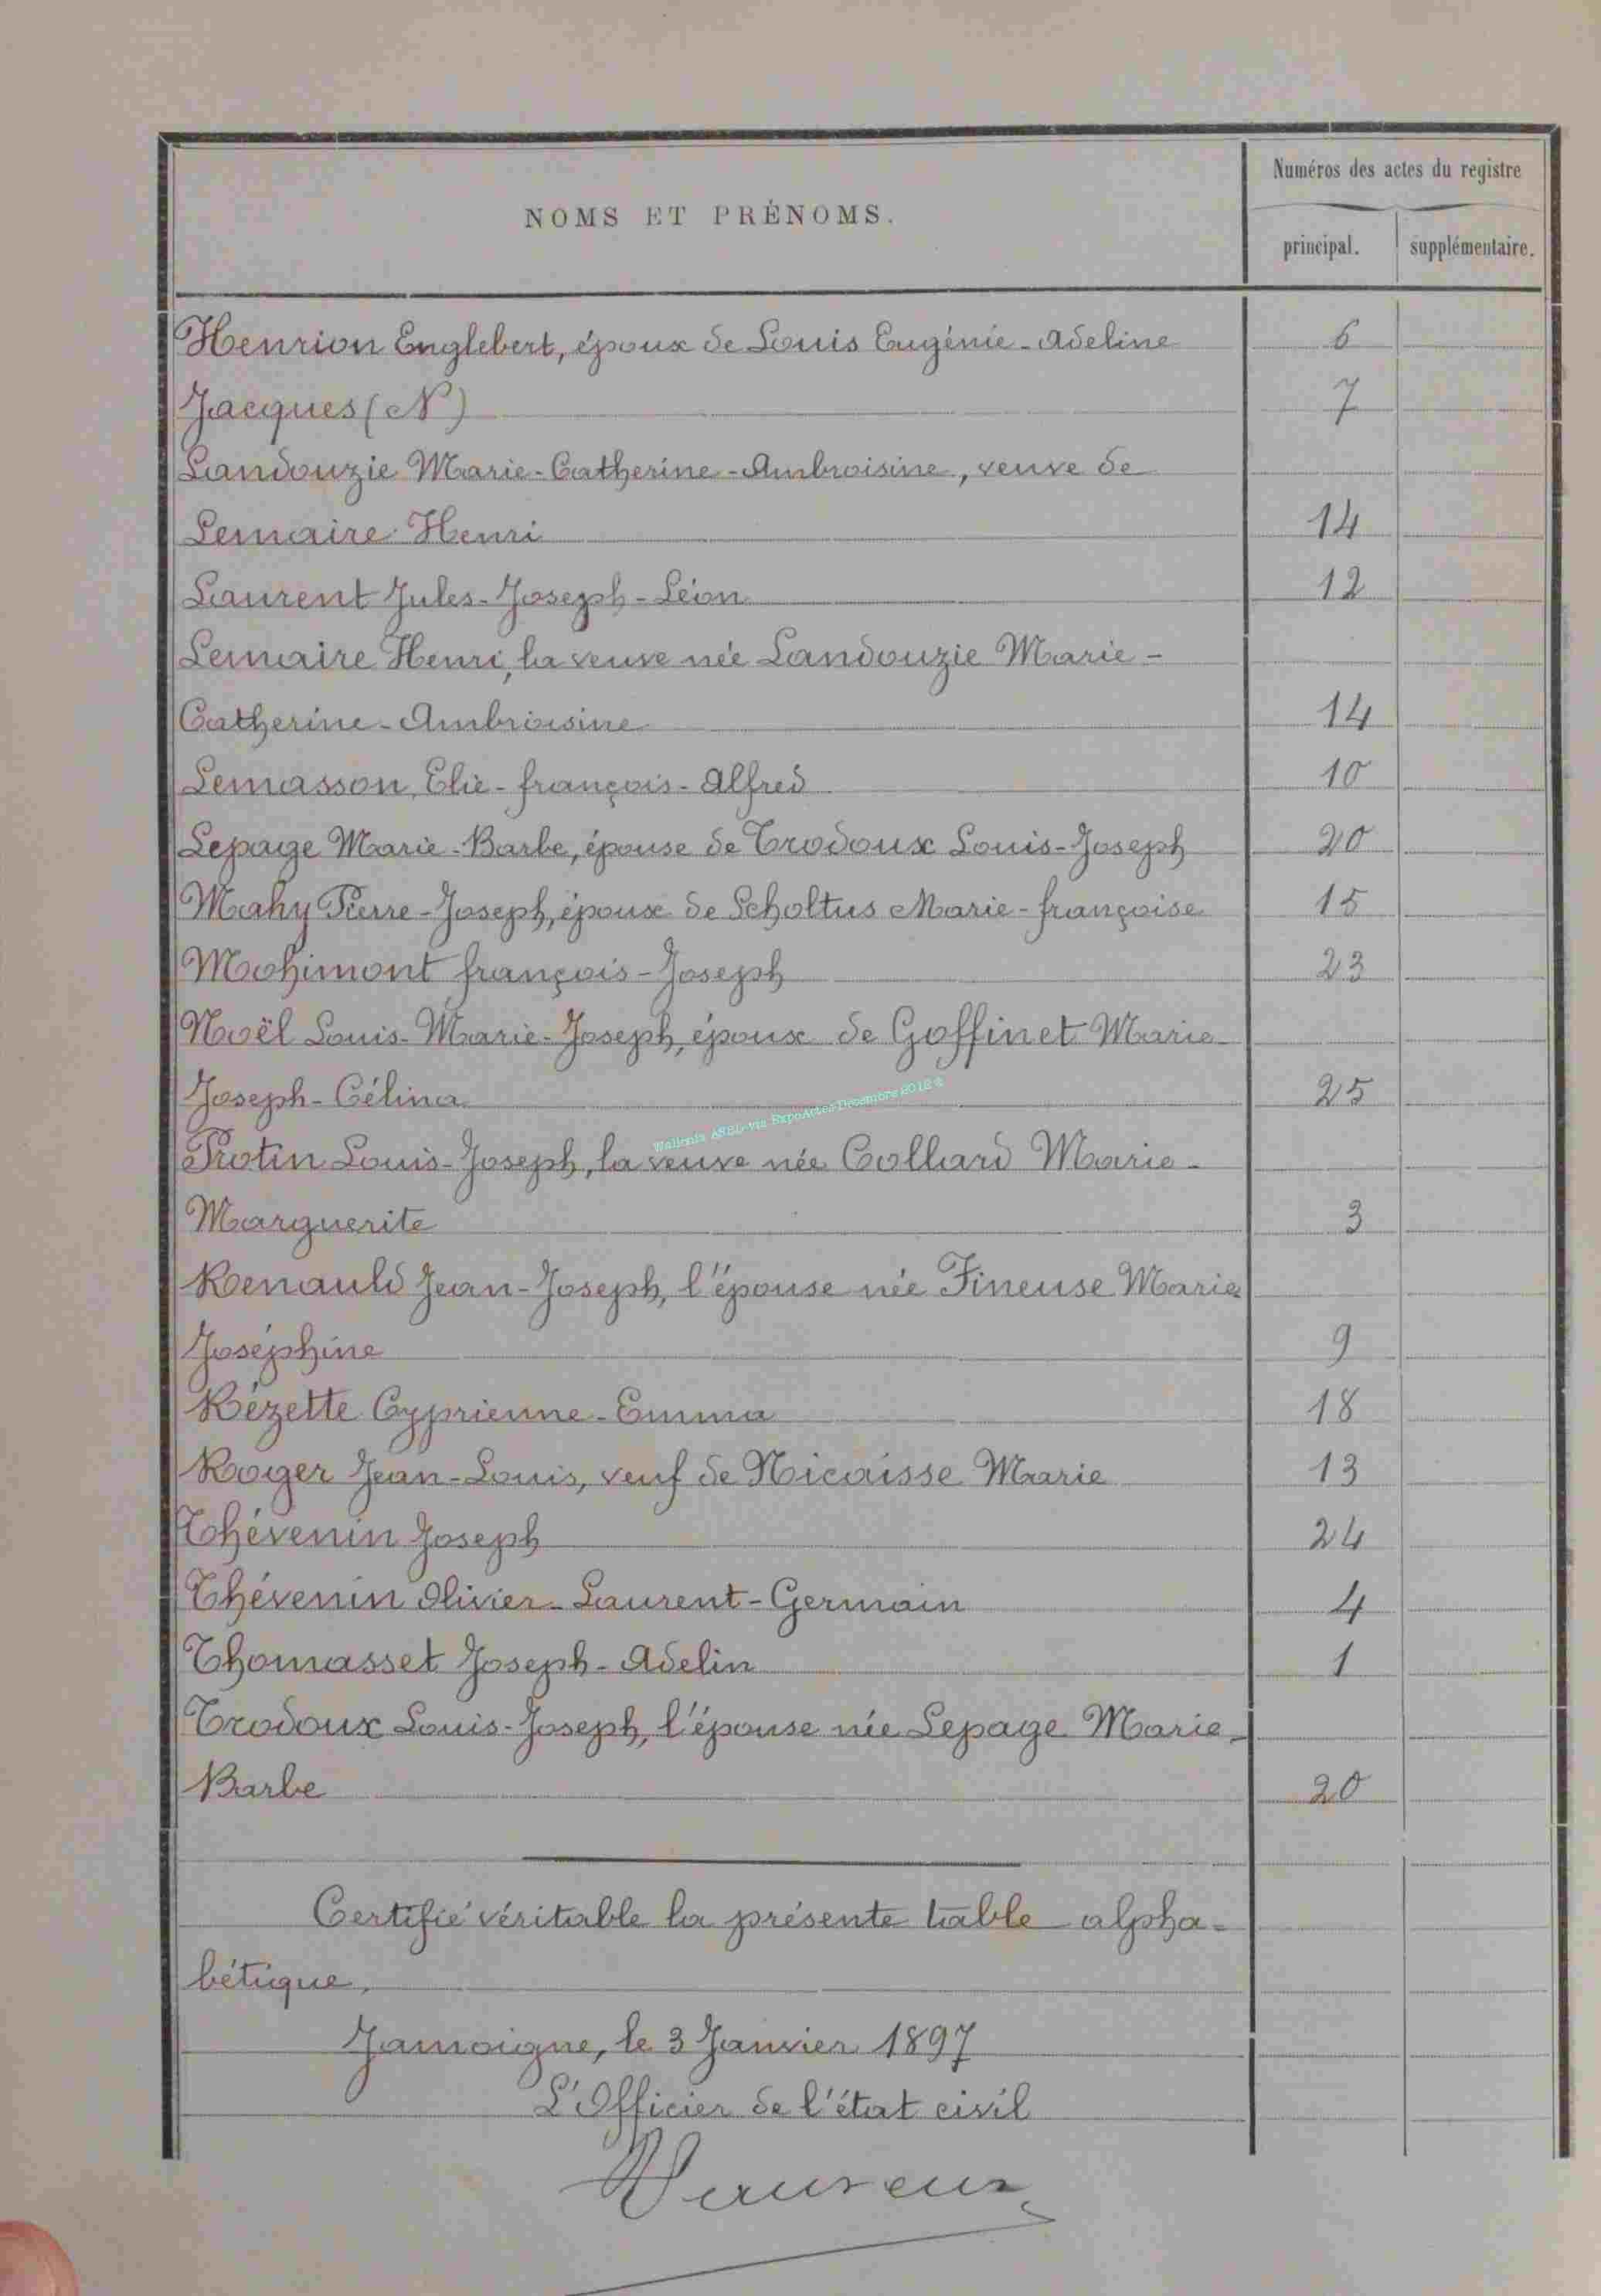 NOMS ET PRÉNOMS.
Numéros des actes du registre
principal. supplémentaire.
Henrion Englebert, époux de Louis Eugénie-Adeline 6
Jacques (N) 7
Landouzie Marie-Catherine-Ambroisine, veuve de
Lemaire Henri 14
Laurent Jules-Joseph-Léon 12
Lemaire Henri, la veuve née Landouzie Marie-
Catherine-Ambroisine 14
Lemasson Elie-françois-Alfred 10
Lepage Marie-Barbe, épouse de Trodoux Louis-Joseph 20
Mahy Pierre-Joseph, époux de Scholtus Marie-françoise 15
Mohimont françois-Joseph 23
Noël Louis-Marie-Joseph, époux de Goffinet Marie-
Joseph-Célina 25
Wallonia ASBL via ExpoActes Decembre 2012 ®
Protin Louis-Joseph, la veuve née Collard Marie-
Marguerite 3
Renauld Jean-Joseph, l'épouse née Fineuse Marie
Joséphine 9
Rézette Cyprienne-Emma 18
Roger Jean-Louis, veuf de Nicaisse Marie 13
Thévenin Joseph 24
Thévenin Olivier-Laurent-Germain 4
Thomasset Joseph-Adelin 1
Trodoux Louis-Joseph, l'épouse née Lepage Marie-
Barbe 20
Certifié véritable la présente table alpha=
bétique,
Jamoigne, le 3 Janvier 1897
L'Officier de l'état civil